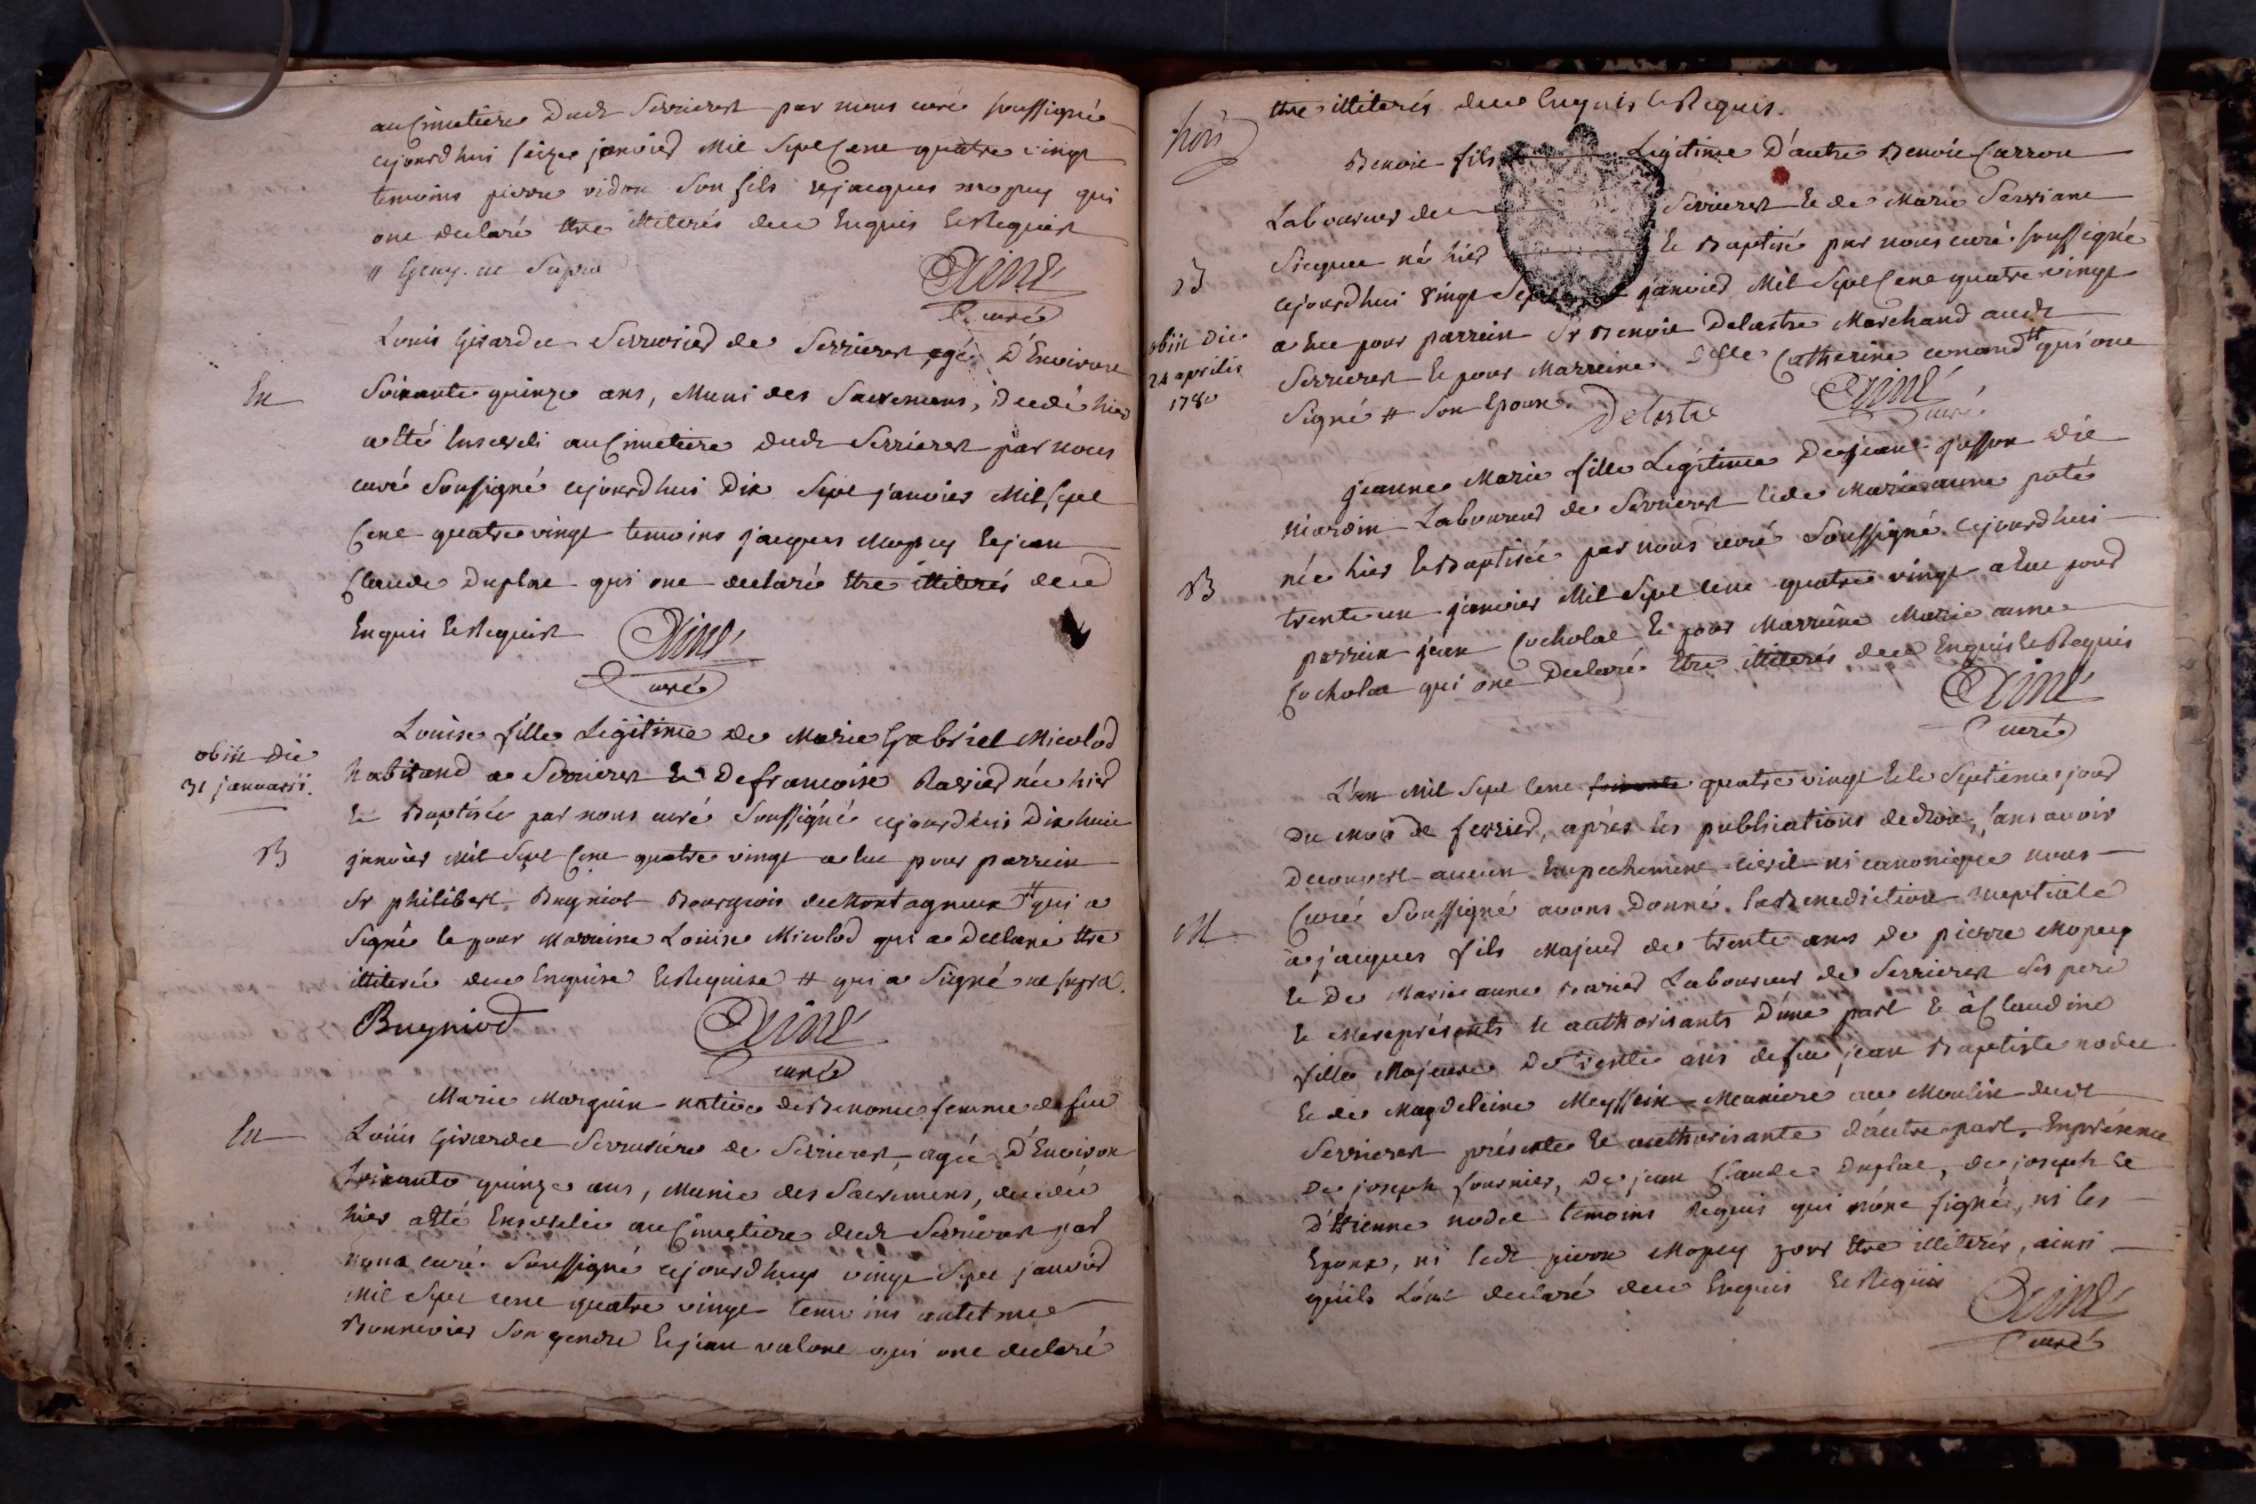 au Cimetiere dudt Serrieres par nous curé soussigné
cejourdhui seize janvier Mil Sept Cent quatre vingt
temoins pierre vidon son fils et jacques mopuy qui
ont declaré être illiterés de ce Enquis et Requis
Ximé
curé
Louis Girardet Serrurier de Serrieres agé D'Environ
En
Soixante quinze ans, Muni des Sacremens, decedé hier
a été Enseveli au Cimetiere dudt Serrieres par nous
curé Soussigné cejourdhui Dix Sept janvier Mil Sept
Cent quatre vingt temoins jacques Mopuy et jean
Claude Duplat qui ont declaré être illiterés de ce
Enquis et Requis
curé
Louise fille Legitime de Marie Gabriel Micolod
obiit die
31 januarii.
habitand a Serrieres et De francoise Ravier née hier
et Baptisée par nous curé Soussigné cejourdhui Dix huit
B
janvier Mil Sept Cent quatre vingt a Eu pour parrein
Sr philibert Bugniot Bourgeois de Montagneux # qui a
Signé et pour Marreine Louise Micolod qui a Declaré être
illiterée de ce Enquise et Requise # qui a Signé ut supra.
Bugniod
curé
Marie Marguin native de femme de feu
En
Louis Girardet Serruriere de Serrieres, agée D'Environ
Soixante quinze ans, Munie des Sacremens, decedée
hier a été Ensevelie au Cimetiere dudt Serrieres par
nous curé Soussigné cejourdhuy vingt Sept janvier
Mil Sept cent quatre vingt temoins antelme
Bonnevier Son gendre et jean valone qui ont declaré
être illiterés de ce Enquis et Requis.
Benoit fils Legitime D'autre Benoit Carron
Laboureur de Serrieres et de Marie Serriane
né hier et Baptisé par nous curé soussigné
B
cejourdhui vingt Sept janvier Mil Sept Cent quatre vingt
obiit die
24 aprilis
1780
a Eu pour parrein Sr Benoit Delastre Marchand audt
Serrieres et pour Marreine Delle Catherine # qui ont
Signé # Son Epoux. Delastre
curé
jeanne Marie fille Legitime De jean jasson dit
Niardin Laboureur de Serrieres et de Marie anne poté
née hier et Baptisée par nous curé Soussigné cejourdhui
B
trente un janvier Mil Sept Cent quatre vingt a Eu pour
parrein jean Cocholat et pour Marreine Marie anne
Cocholat qui ont Declaré être illiterés de ce Enquis et Requis
curé
L'an Mil Sept Cent quatre vingt et le Septieme jour
Du mois de fevrier, après les publications de droit, sans avoir
Decouvert aucun Empechement civil ni canonique nous
M
Curé Soussigné avons Donné la Benediction nuptiale
a jacques fils Majeur de trente ans de pierre Mopuy
et De Marie anne Laboureur de Serrieres ses pere
et Mere présents et authorisants D'une part et à Claudine
fille Majeure De trente ans de feu jean Baptiste nodet
et de Magdeleine Meyssein Meuniere au Moulin dudt
Serrieres présente et authorisante d'autre part. En présence
De joseph fournier, De jean Claude Duplat, de joseph et
D'Etienne nodet temoins Requis qui n'ont signé, ni les
Epoux, ni ledt pierre Mopuy pour être illiterés, ainsi
qu'ils L'ont declaré de ce Enquis et Requis
curé